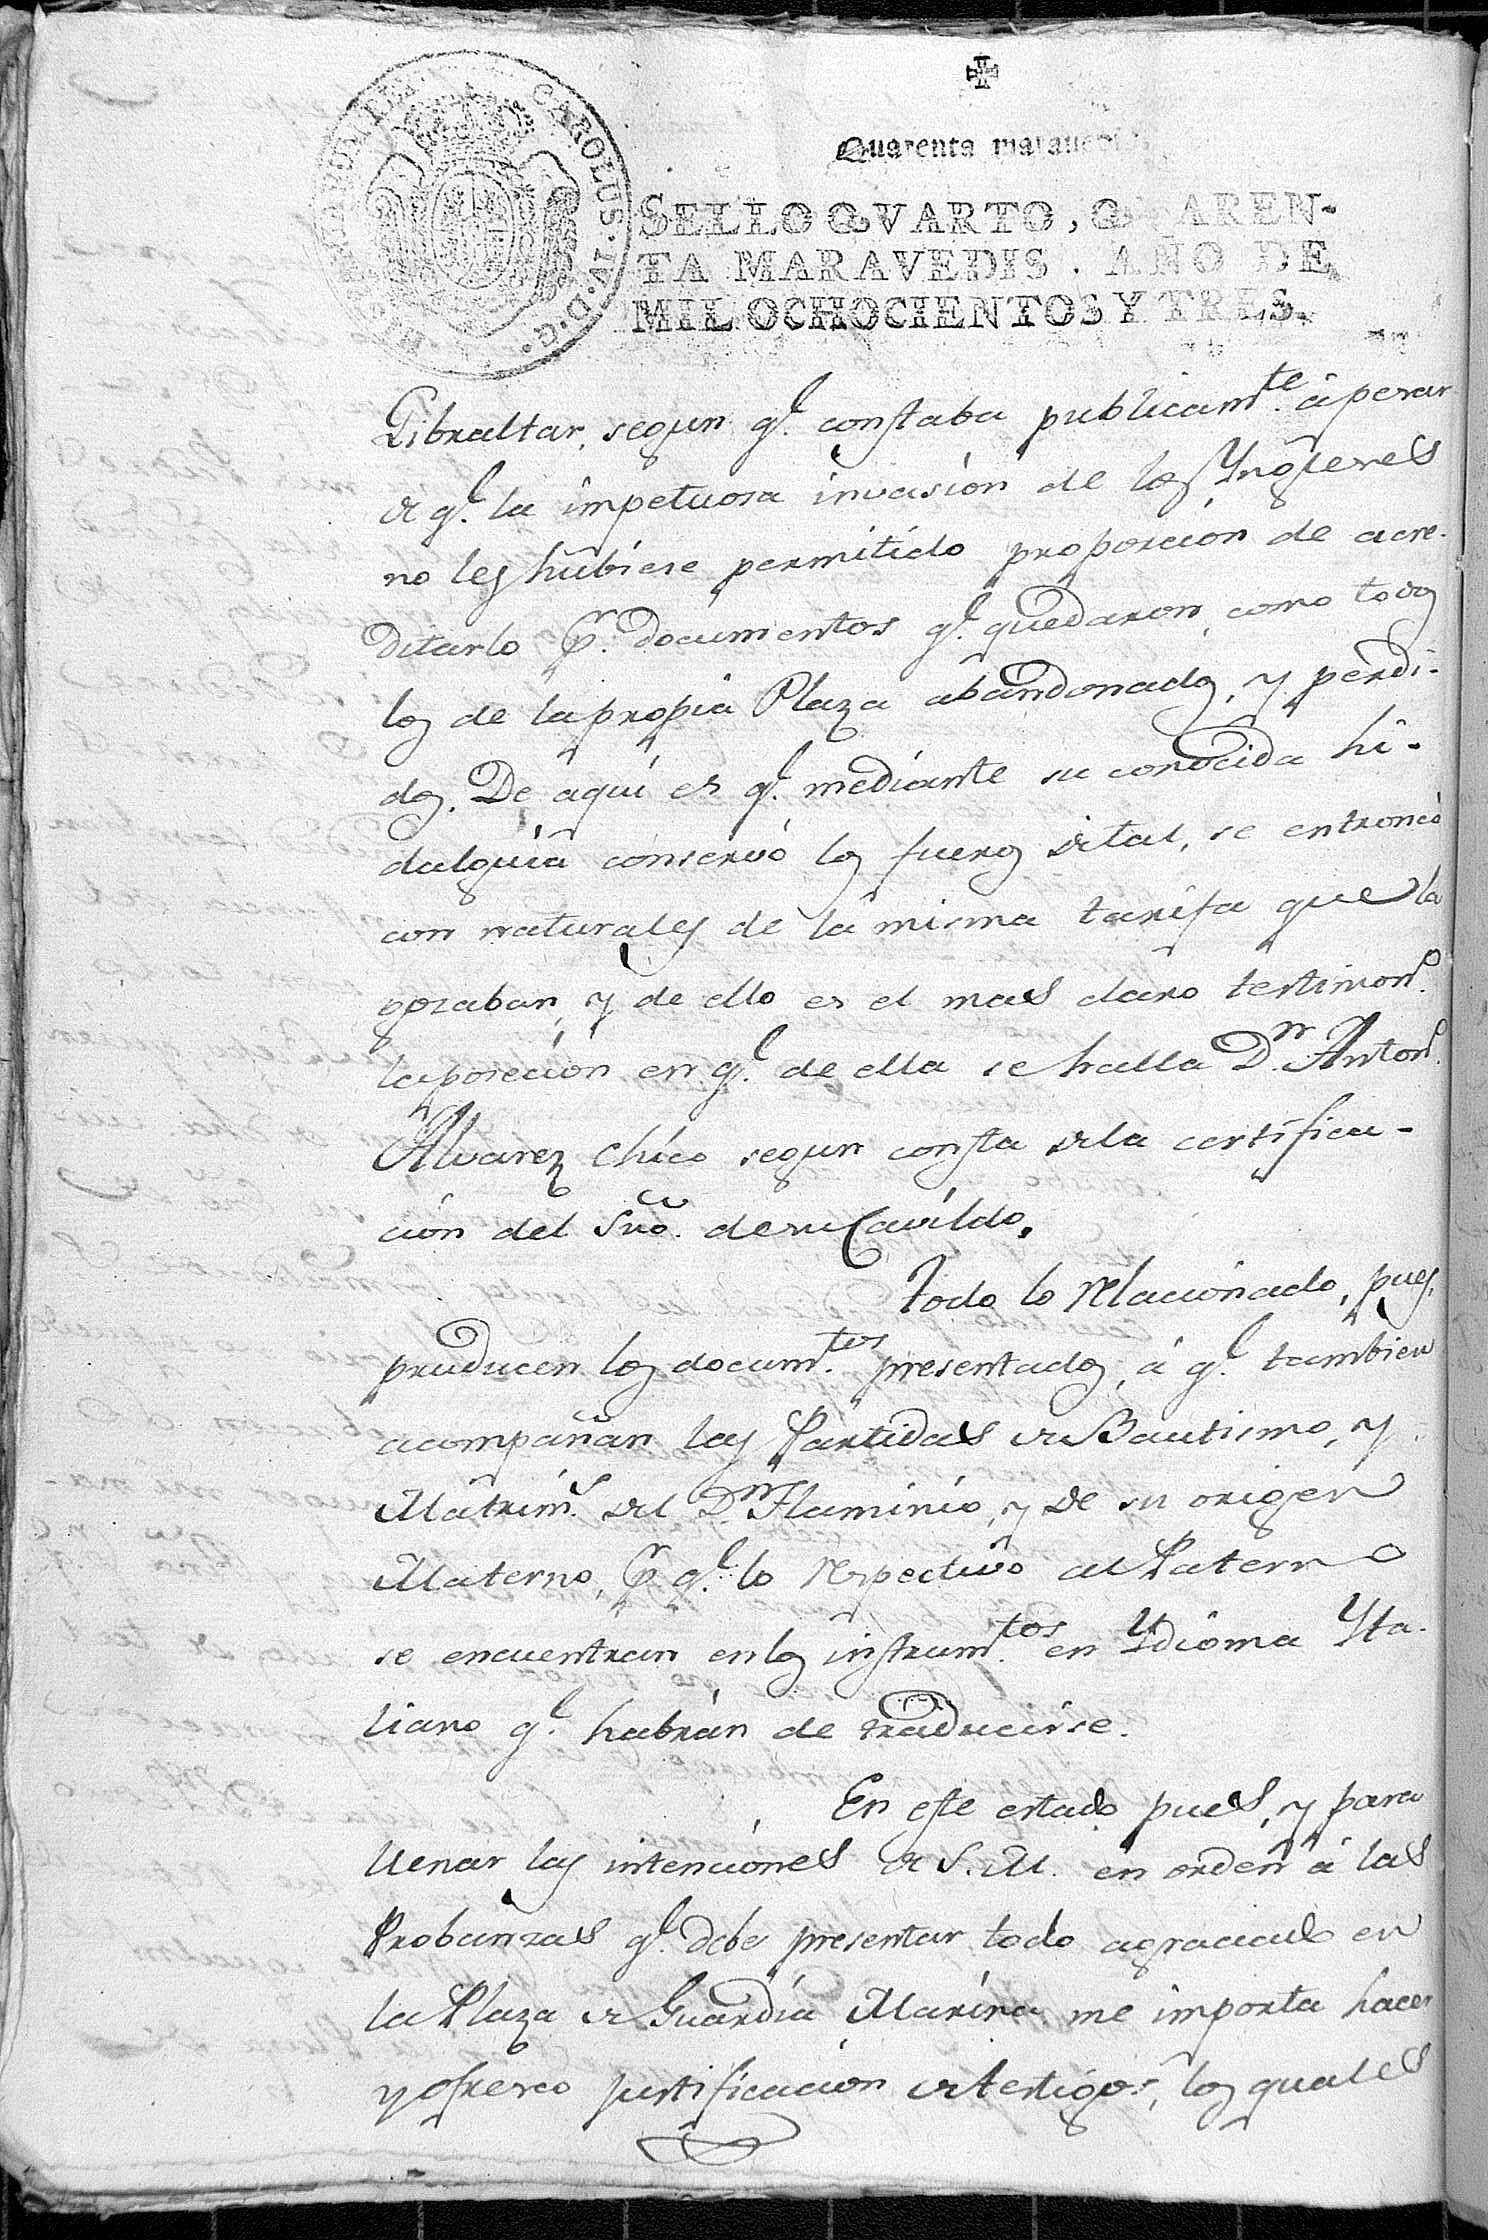 Quarenta maravedi
SELLO QVARTO, QVAREN-
TA MARAVEDIS. AÑO DE
MIL OCHOCIENTOS Y TRES.
CAROLUS · IV · D · G ·
Gibraltar, segun q.l constaba publicam.te â pesar
de q.l la impetuosa invasion de los Yngleses
no les hubiese permitido proporcion de acre-
ditarlo p.r documentos q.l quedaron, como todos
los de la propia Plaza abandonados, y perdi-
dos. De aqui es q.l mediante su conocida hi-
dalguia conservó los fueros de tal, se entroncó
con naturales de la misma tarifa que la
gozaban, y de ello es el mas claro testimon.o
la posecion en q.l de ella se halla D.n Anton.o
Alvarez Chico segun consta de la certifica-
ción del Sño. de su Cavildo.
Todo lo relacionado, pues,
producen los docum.tos presentados, á q.l tambien
acompañan las Partidas de Bautismo, y
Matrim.s del D.n Flaminio, y de su origen
Materno, p.r q.l lo respectivo al Paterno
se encuentran en los instrum.tos en Ydioma Yta-
liano q.l habrán de traducirse.
En este estado pues, y para
llenar las intenciones de S.M. en orden á las
Probanzas q.l debe presentar todo agraciado en
la Plaza de Guardia Marina me importa hacer
y ofresco justificacion de testigos, los quales